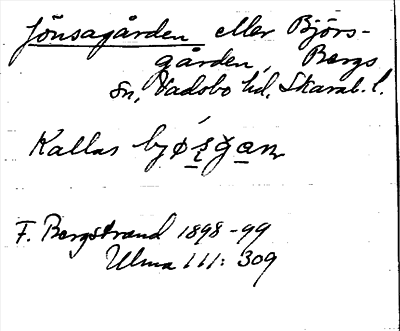 Jönsagården eller Björs-
gården, Bergs
sn, Vadsbo hd, Skarab. l.
Kallas
F. Bergstrand 1898-99
Ulma 111: 309